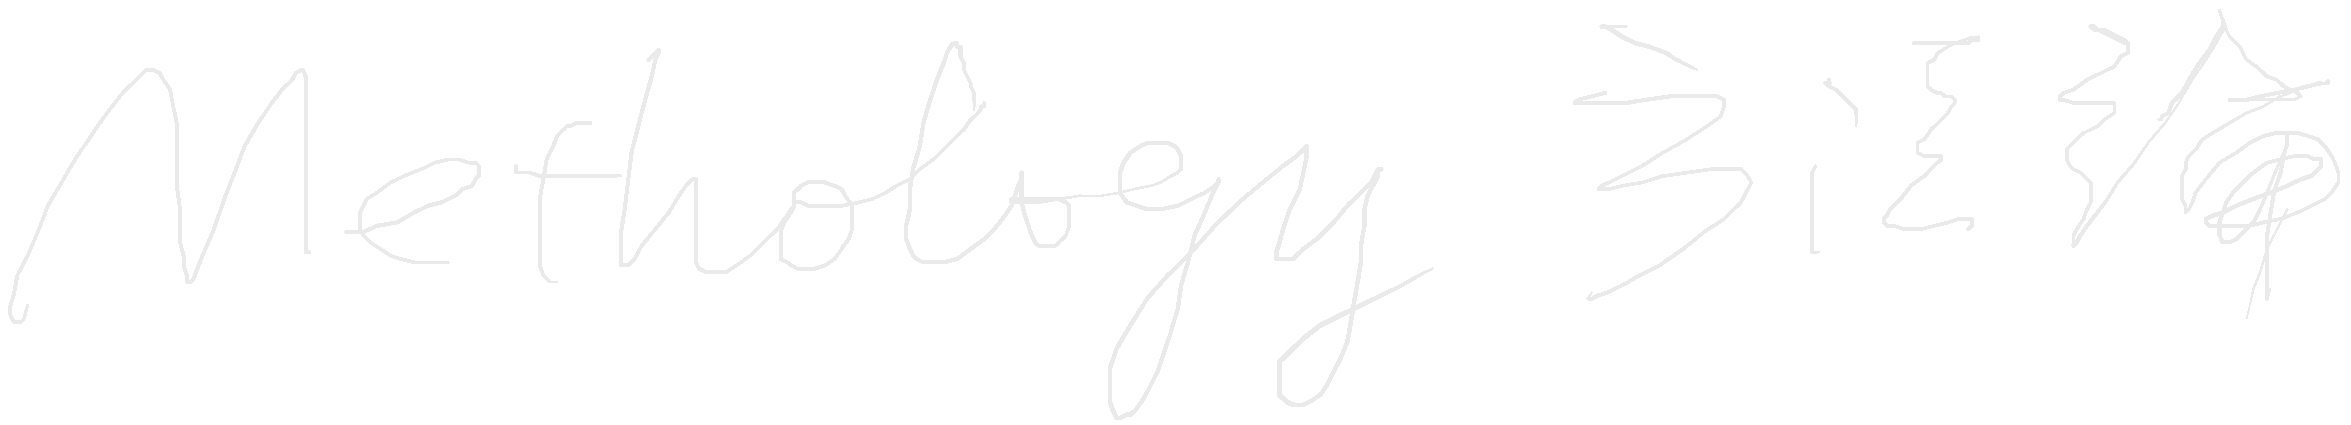 Methology 方法論